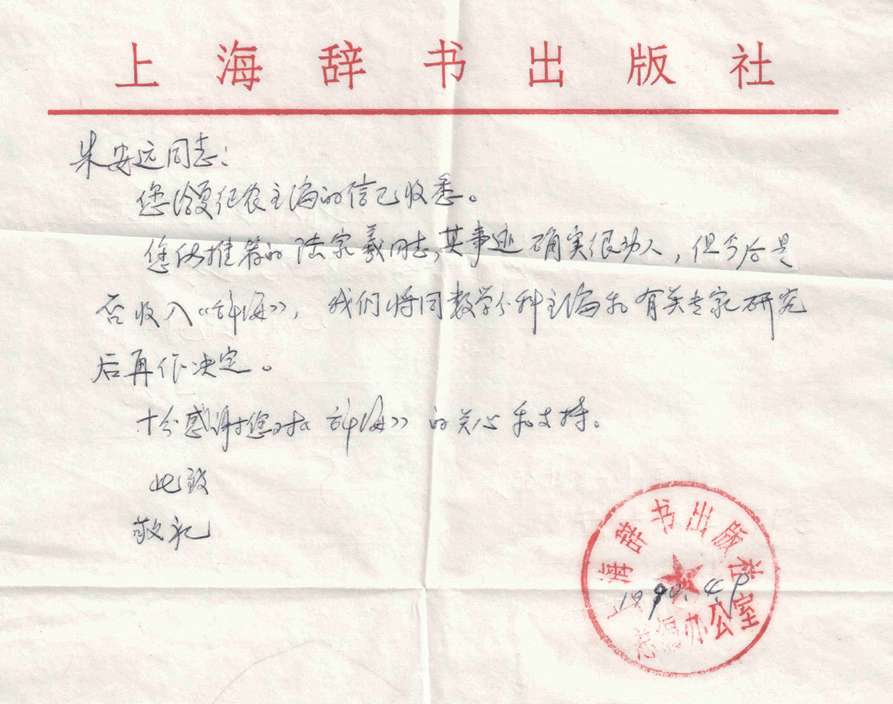 上海辞书出版社
朱安远同志：
您给夏征农主编的信已收悉。
您所推荐的陆家羲同志，其事迹确实很动人，但今后是
否收入《辞海》，我们将同数学分科主编和有关专家研究
后再作决定。
十分感谢您对《辞海》的关心和支持。
此致
敬礼
上海辞书出版社
总编办公室